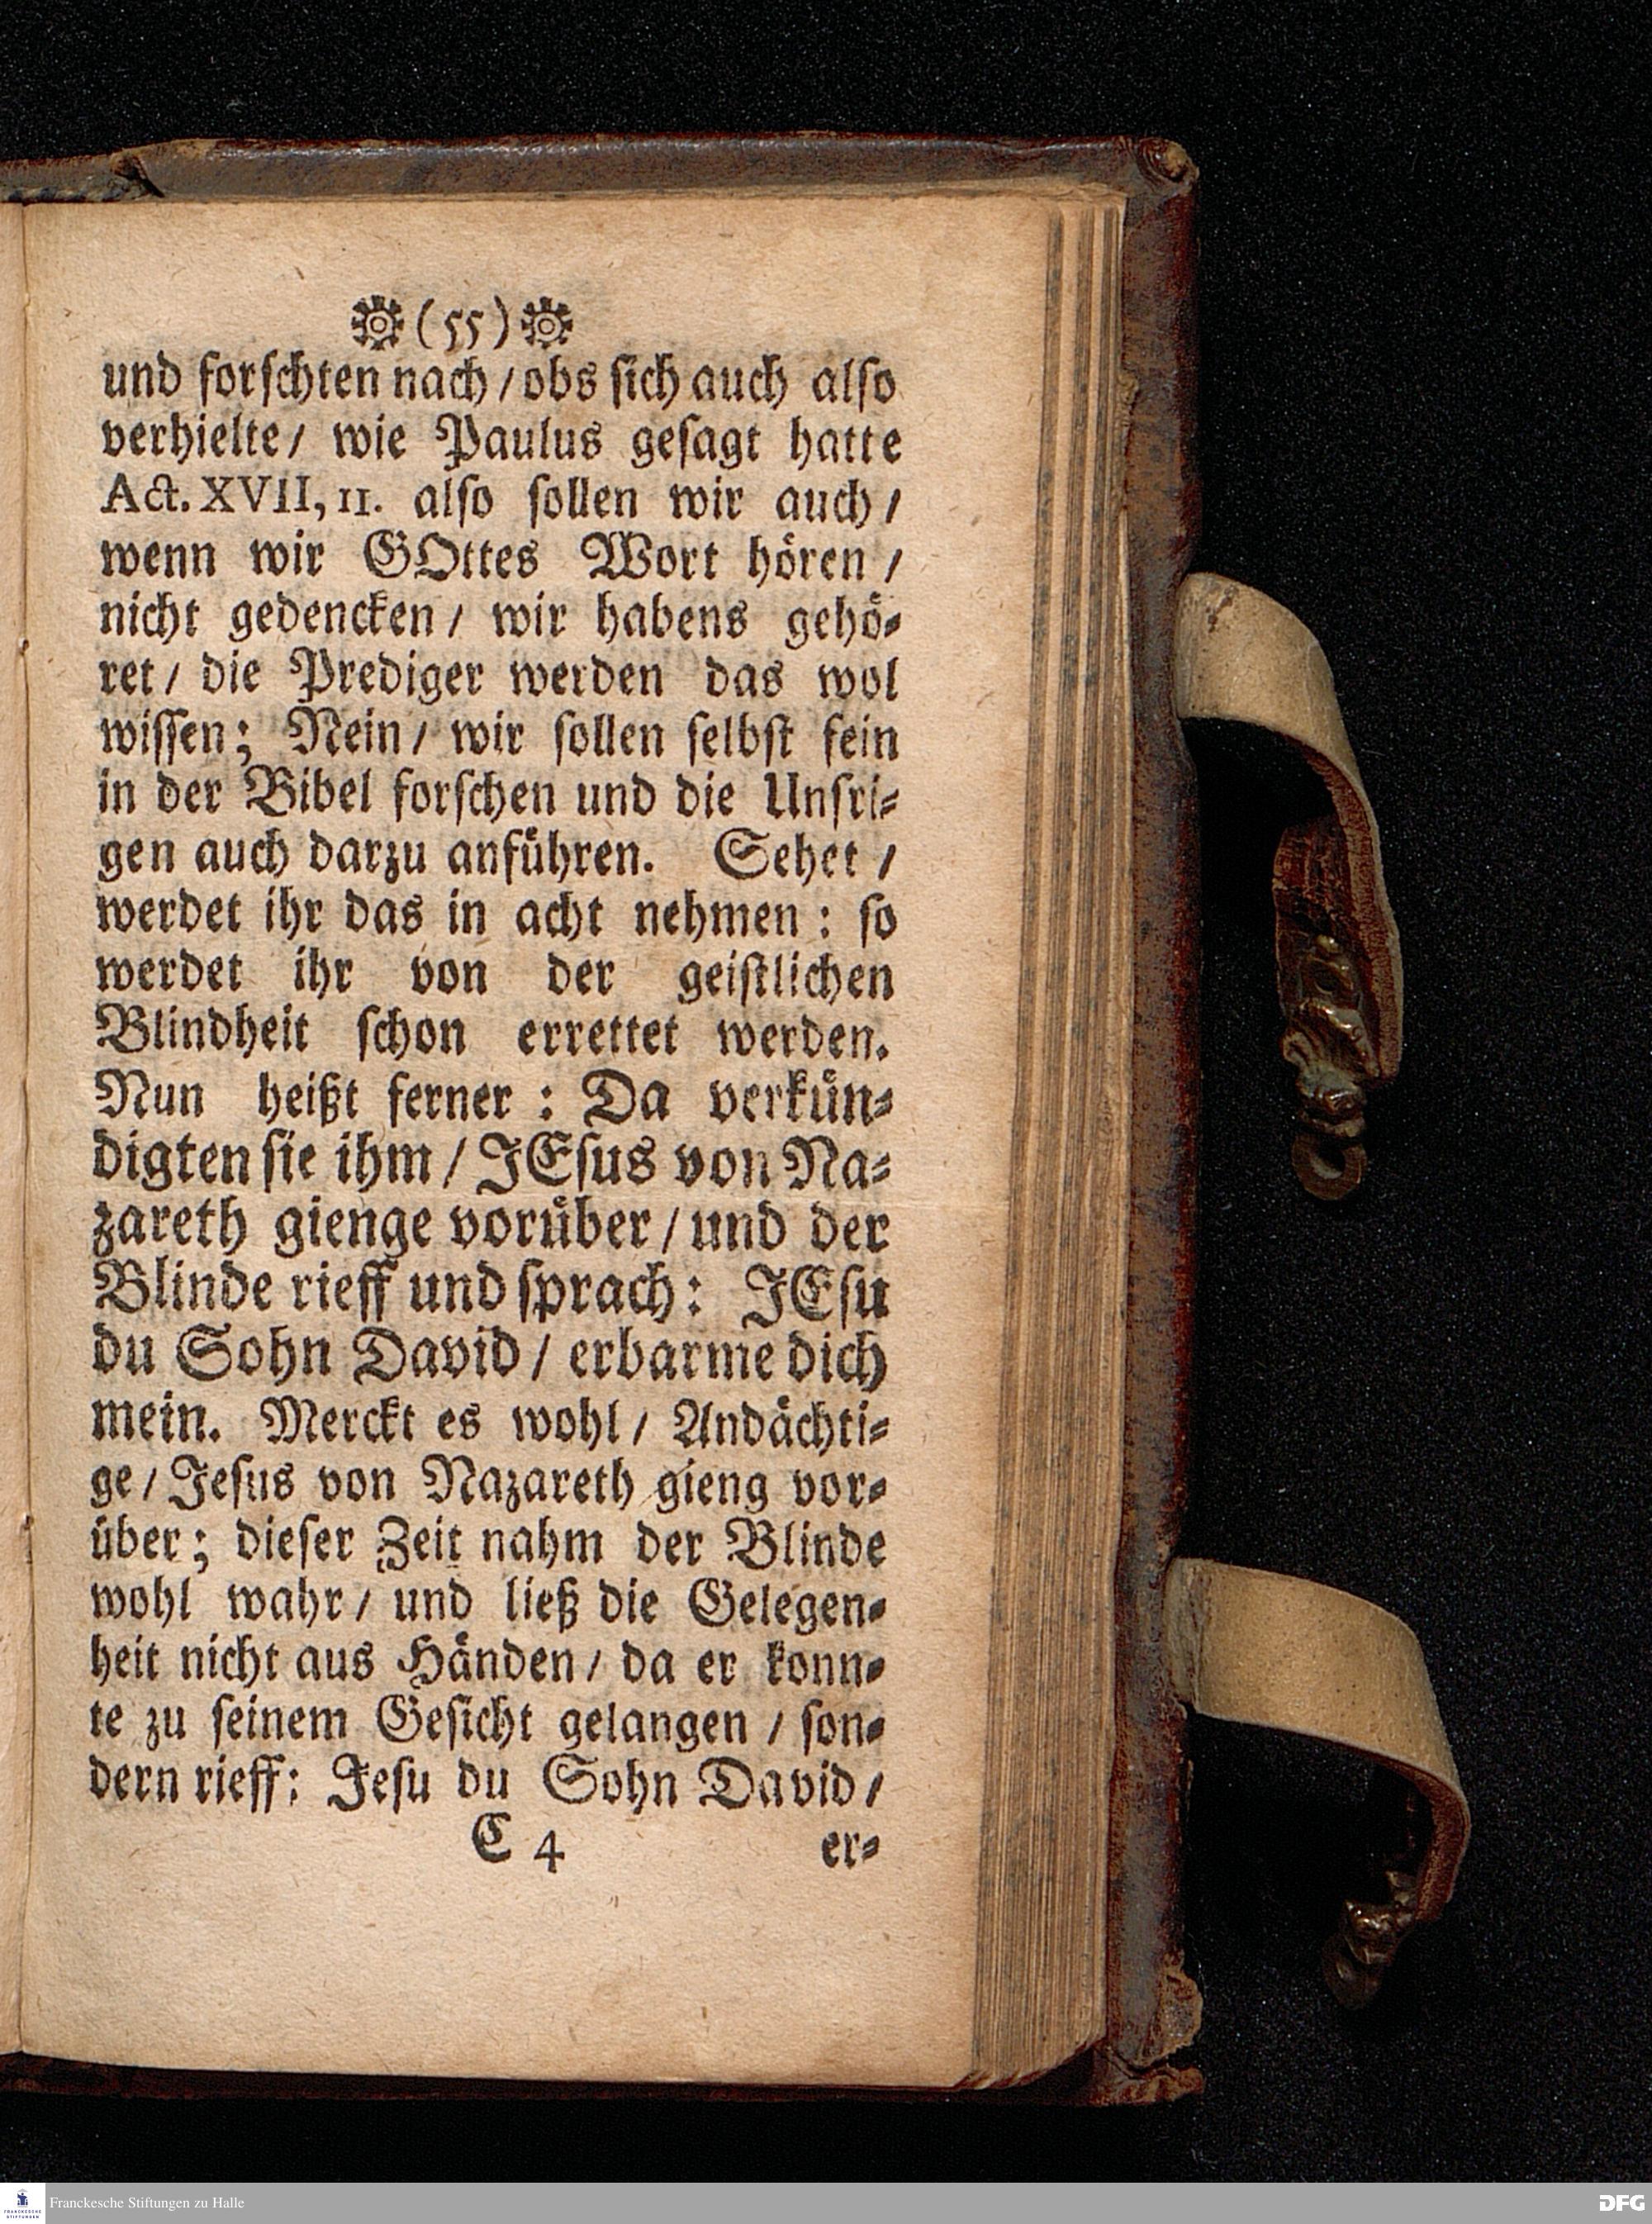 (55)
und forschten nach / obs sich auch also
verhielte / wie Paulus gesagt hatte
Act. XVII, 11. also sollen wir auch /
wenn wir GOttes Wort hören /
nicht gedencken / wir habens gehö-
ret / die Prediger werden das wol
wissen; Nein / wir sollen selbst fein
in der Bibel forschen und die Unsri-
gen auch darzu anführen. Sehet /
werdet ihr das in acht nehmen : so
werdet ihr von der geistlichen
Blindheit schon errettet werden.
Nun heißt ferner : Da verkün-
digten sie ihm / JEsus von Na-
zareth gienge vorüber / und der
Blinde rieff und sprach: JEsu
du Sohn David / erbarme dich
mein. Merckt es wohl / Andächti-
ge / Jesus von Nazareth gieng vor-
über; dieser Zeit nahm der Blinde
wohl wahr / und ließ die Gelegen-
heit nicht aus Händen / da er konn-
te zu seinem Gesicht gelangen / son-
dern rieff: Jesu du Sohn David /
C 4 er-
FRANCKESCHE STIFTUNGEN
Franckesche Stiftungen zu Halle
DFG